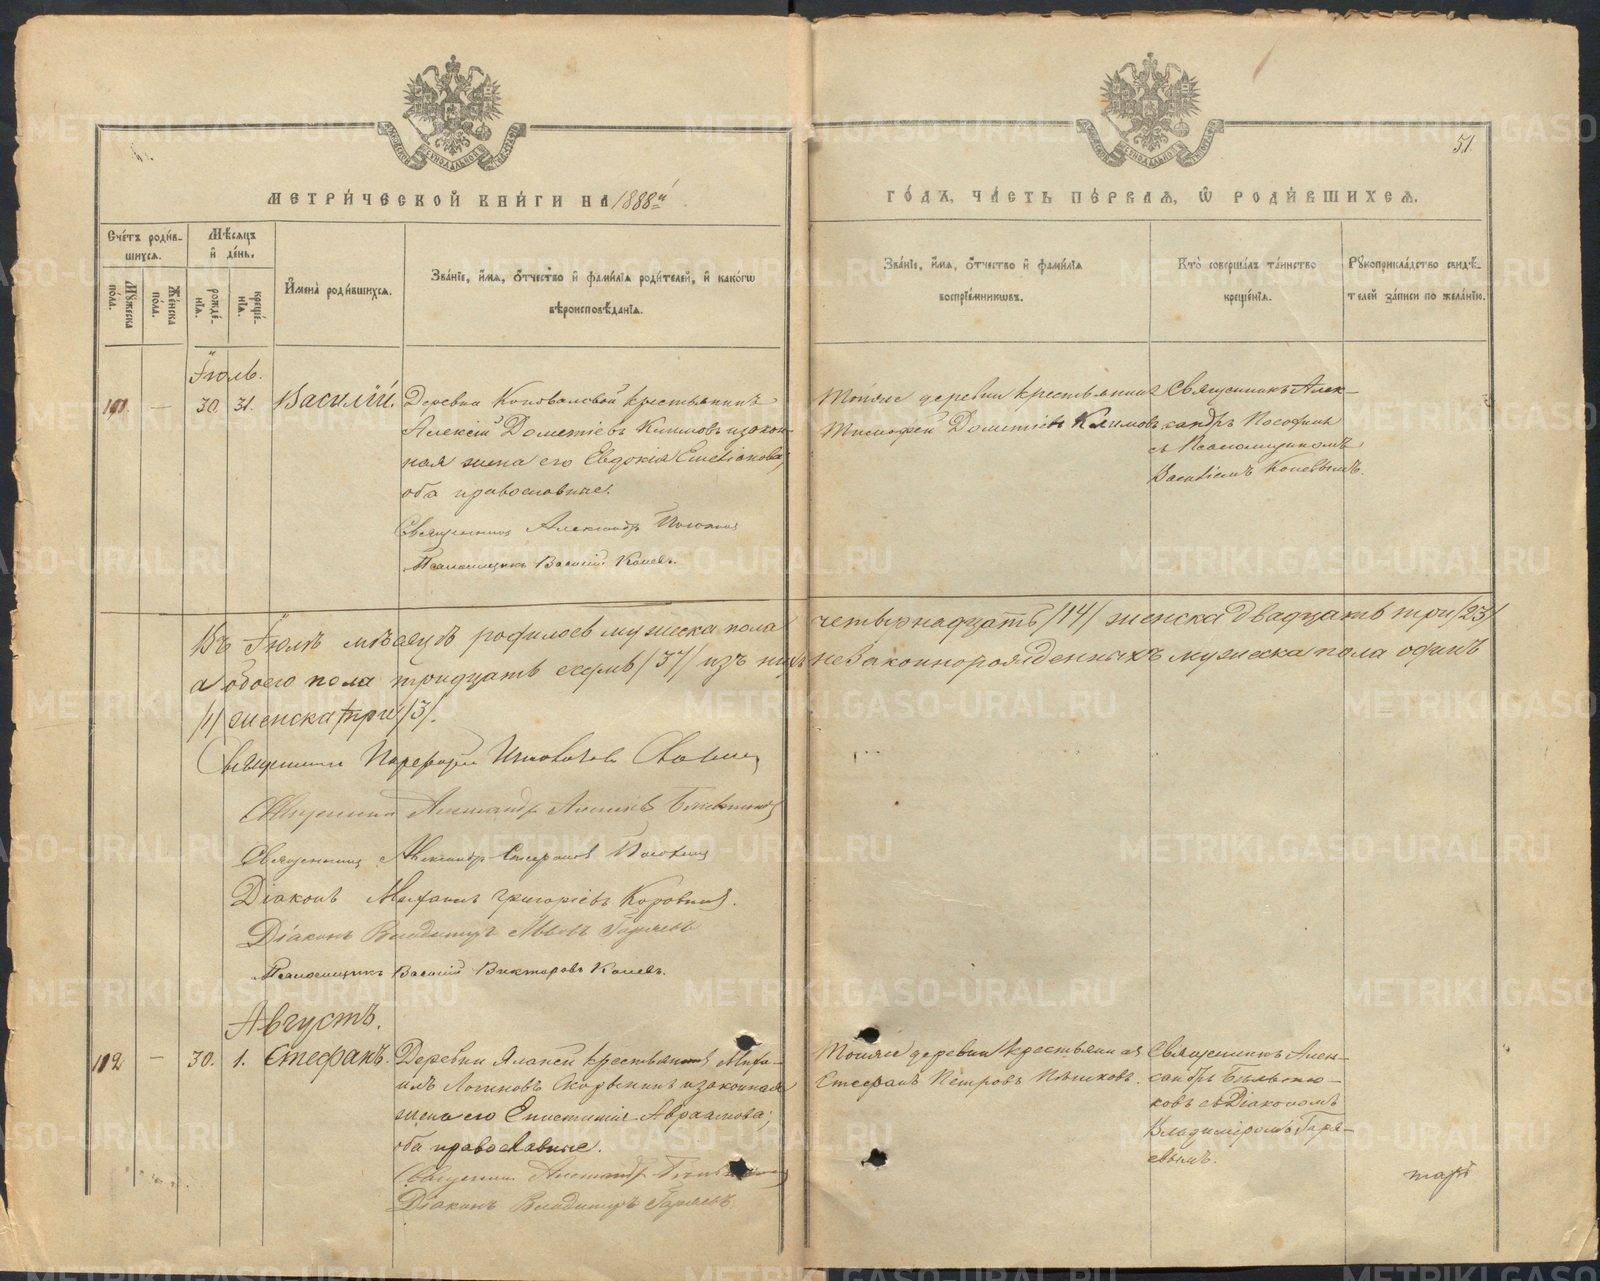 МЕТРИ́ЧЕСКОЙ КНИ́ГИ НА 1888й
ГО́ДЪ, ЧА́СТЬ ПЕ́РВАЯ, Ѡ РОДИ́ВШИХСЯ.
51.
Сче́тъ роди́в-
шихся.
Му́жеска
по́ла.
Же́нска
по́ла.
Мѣ́сяцъ
и҆ де́нь.
рожде́-
нїя.
креще́-
нїя.
И҆мена̀ роди́вшихся.
Зва́нїе, и҆́мя, ѻ҆́тчество и҆ фами́лїя роди́телей, и҆ како́гѡ
вѣроисповѣ́данїя.
Зва́нїе, и҆́мя, ѻ҆́тчество и҆ фами́лїя
воспрїе́мникѡвъ.
Кто̀ соверша́лъ та́инство
креще́нїя.
Рꙋкоприкла́дство свидѣ́-
телей за́писи по жела́нїю.
Іюль.
101. — 30. 31. Василій.
Деревни Коноваловой крестьянинъ
Алексій Дометіевъ Климовъ и закон-
ная жена его Евдокія Емеліанова;
оба православные.
Священникъ Александръ
Псаломщикъ Василій Коневъ.
Тойже деревни крестьянинъ
Тимофей Дометіевъ Климовъ.
Священникъ Алек-
сандръ
съ Псаломщикомъ
Василіемъ Коневымъ.
Въ Іюлѣ мѣсяцѣ родилось мужеска пола четырнадцать /14/ женска двадцать три /23/
а обоего пола тридцать семь /37/ изъ нихъ незаконнорожденныхъ мужеска пола одинъ
/1/ женска три /3/.
Священникъ
Священникъ Александръ
Священникъ Александръ Стефановъ
Діаконъ Михаилъ Григоріевъ Коровинъ.
Діаконъ Владимиръ Львовъ Горяевъ
Псаломщикъ Василій Викторовъ Коневъ.
Августъ.
102 — 30. 1. Стефанъ.
Деревни Яланской крестьянинъ Миха-
илъ Логиновъ Скорынинъ и законная
жена его Епистимія Авраамова;
оба православные.
Священникъ Александръ
Діаконъ Владимиръ Горяевъ.
Тойже деревни крестьянинъ
Стефанъ Петровъ Пѣшковъ.
Священникъ Алек-
сандръ
ковъ съ Діакономъ
Владиміромъ Горя-
евымъ.
METRIKI.GASO-URAL.RU